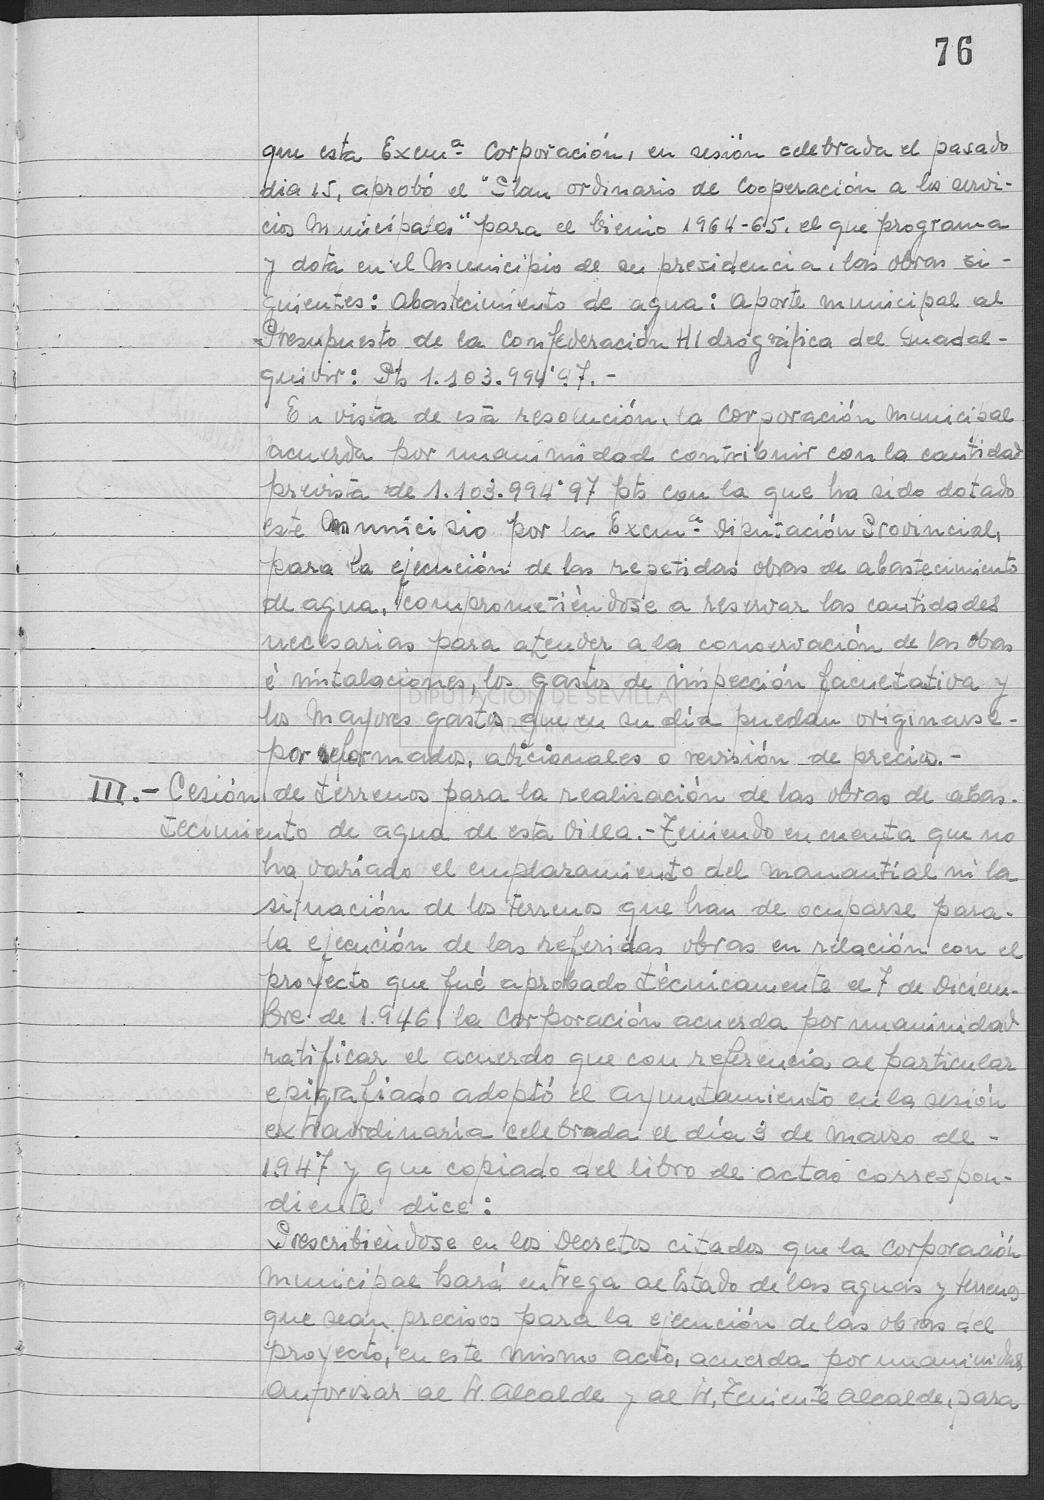 76
que esta Excmª Corporación, en sesión celebrada el pasado
dia 15, aprobó el "Plan ordinario de Cooperación a los servi-
cios Municipales" para el bienio 1964-65, el que programa
y dota en el Municipio de su presidencia, las obras si-
guientes: Abastecimiento de agua: Aporte municipal al
Presupuesto de la Confederación Hidrográfica del Guadal-
quivir: Pts 1.103.994'97.-
En vista de esta resolución, la Corporación Municipal
acuerda por unanimidad contribuir con la cantidad
prevista de 1.103.994'97 pts con la que ha sido dotado
este Municipio por la Excmª Diputación Provincial,
para la ejecución de las repetidas obras de abastecimiento
de agua, comprometiéndose a reservar las cantidades
necesarias para atender a la conservación de las obras
é instalaciones, los gastos de inspección facultativa y
los mayores gastos que en su día puedan originarse-
por reformados, adicionales o revisión de precios.-
DIPUTACIÓN DE SEVILLA
ARCHIVO
III.- Cesión de terrenos para la realización de las obras de abas-
tecimiento de agua de esta villa.- Teniendo en cuenta que no
ha variado el emplazamiento del manantial ni la
situación de los terrenos que han de ocuparse para-
la ejecución de las referidas obras en relación con el
proyecto que fué aprobado técnicamente el 7 de Diciem-
bre de 1.946, la Corporación acuerda por unanimidad
ratificar el acuerdo que con referencia al particular
epigrafiado adoptó el Ayuntamiento en la sesión
extraordinaria celebrada el día 3 de Marzo de -
1.947 y que copiado del libro de actas correspon-
diente dice:
Prescribiéndose en los Decretos citados que la Corporación
Municipal hará entrega al Estado de las aguas y terrenos
que sean precisos para la ejecución de las obras del
proyecto, en este mismo acto, acuerda por unanimidad
autorizar al Sr. Alcalde y al Sr. Teniente Alcalde, para